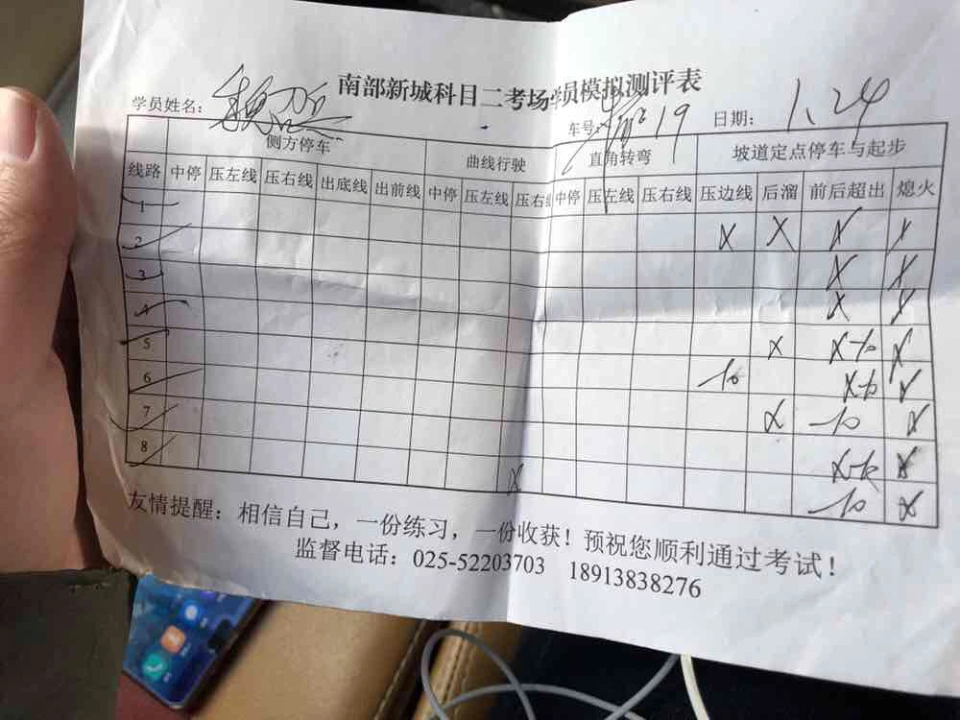 南部新城科目二考场学员模拟测评表
学员姓名： 车号： 19 日期： 1.24
侧方停车 曲线行驶 直角转弯 坡道定点停车与起步
线路 中停 压左线 压右线 出底线 出前线 中停 压左线 压右线 中停 压左线 压右线 压边线 后溜 前后超出 熄火
1 X X X X
2 X X
3 X X
4 X X -10 X
5 -10 X -10 X
6 X -10 X
7 X X
8 X -10 X
友情提醒：相信自己，一份练习，一份收获！预祝您顺利通过考试！
监督电话：025-52203703 18913838276